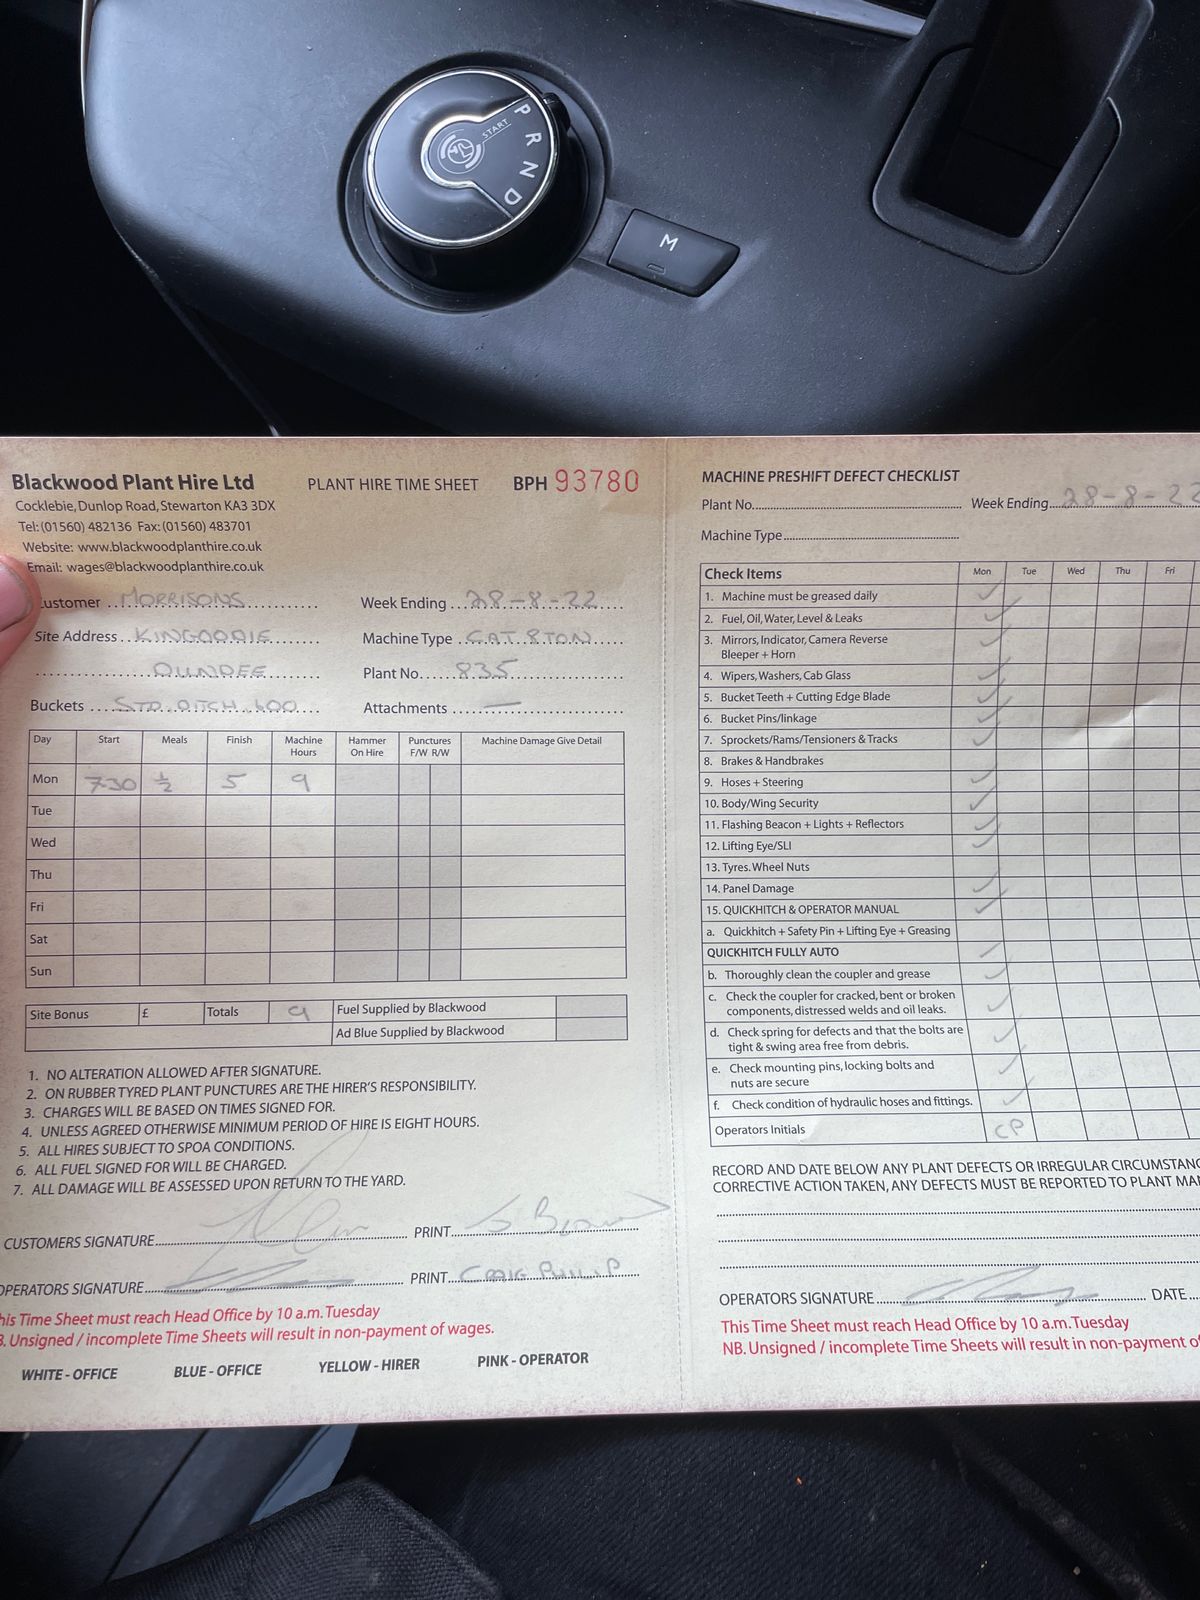 START
P
R
N
D
M
Blackwood Plant Hire Ltd
PLANT HIRE TIME SHEET
BPH 93780
Cocklebie, Dunlop Road, Stewarton KA3 3DX
Tel: (01560) 482136 Fax: (01560) 483701
Website: www.blackwoodplanthire.co.uk
Email: wages@blackwoodplanthire.co.uk
ustomer MORRISONS
Week Ending 28-8-22
Site Address KINGOODIE
Machine Type CAT 8TON
DUNDEE
Plant No. 835
Buckets STD DITCH 600
Attachments —
Day Start Meals Finish Machine Hours Hammer On Hire Punctures F/W R/W Machine Damage Give Detail
Mon 730 ½ 5 9
Tue
Wed
Thu
Fri
Sat
Sun
Site Bonus £ Totals 9 Fuel Supplied by Blackwood
Ad Blue Supplied by Blackwood
1. NO ALTERATION ALLOWED AFTER SIGNATURE.
2. ON RUBBER TYRED PLANT PUNCTURES ARE THE HIRER'S RESPONSIBILITY.
3. CHARGES WILL BE BASED ON TIMES SIGNED FOR.
4. UNLESS AGREED OTHERWISE MINIMUM PERIOD OF HIRE IS EIGHT HOURS.
5. ALL HIRES SUBJECT TO SPOA CONDITIONS.
6. ALL FUEL SIGNED FOR WILL BE CHARGED.
7. ALL DAMAGE WILL BE ASSESSED UPON RETURN TO THE YARD.
CUSTOMERS SIGNATURE
PRINT S Brown
OPERATORS SIGNATURE
PRINT CRAIG PHILIP
his Time Sheet must reach Head Office by 10 a.m. Tuesday
B. Unsigned / incomplete Time Sheets will result in non-payment of wages.
WHITE - OFFICE BLUE - OFFICE YELLOW - HIRER PINK - OPERATOR
MACHINE PRESHIFT DEFECT CHECKLIST
Plant No. Week Ending 28-8-22
Machine Type
Check Items Mon Tue Wed Thu Fri
1. Machine must be greased daily
2. Fuel, Oil, Water, Level & Leaks
3. Mirrors, Indicator, Camera Reverse
Bleeper + Horn
4. Wipers, Washers, Cab Glass
5. Bucket Teeth + Cutting Edge Blade
6. Bucket Pins/linkage
7. Sprockets/Rams/Tensioners & Tracks
8. Brakes & Handbrakes
9. Hoses + Steering
10. Body/Wing Security
11. Flashing Beacon + Lights + Reflectors
12. Lifting Eye/SLI
13. Tyres. Wheel Nuts
14. Panel Damage
15. QUICKHITCH & OPERATOR MANUAL
a. Quickhitch + Safety Pin + Lifting Eye + Greasing
QUICKHITCH FULLY AUTO
b. Thoroughly clean the coupler and grease
c. Check the coupler for cracked, bent or broken
components, distressed welds and oil leaks.
d. Check spring for defects and that the bolts are
tight & swing area free from debris.
e. Check mounting pins, locking bolts and
nuts are secure
f. Check condition of hydraulic hoses and fittings.
Operators Initials CP
RECORD AND DATE BELOW ANY PLANT DEFECTS OR IRREGULAR CIRCUMSTANC
CORRECTIVE ACTION TAKEN, ANY DEFECTS MUST BE REPORTED TO PLANT MA
OPERATORS SIGNATURE DATE
This Time Sheet must reach Head Office by 10 a.m. Tuesday
NB. Unsigned / incomplete Time Sheets will result in non-payment of